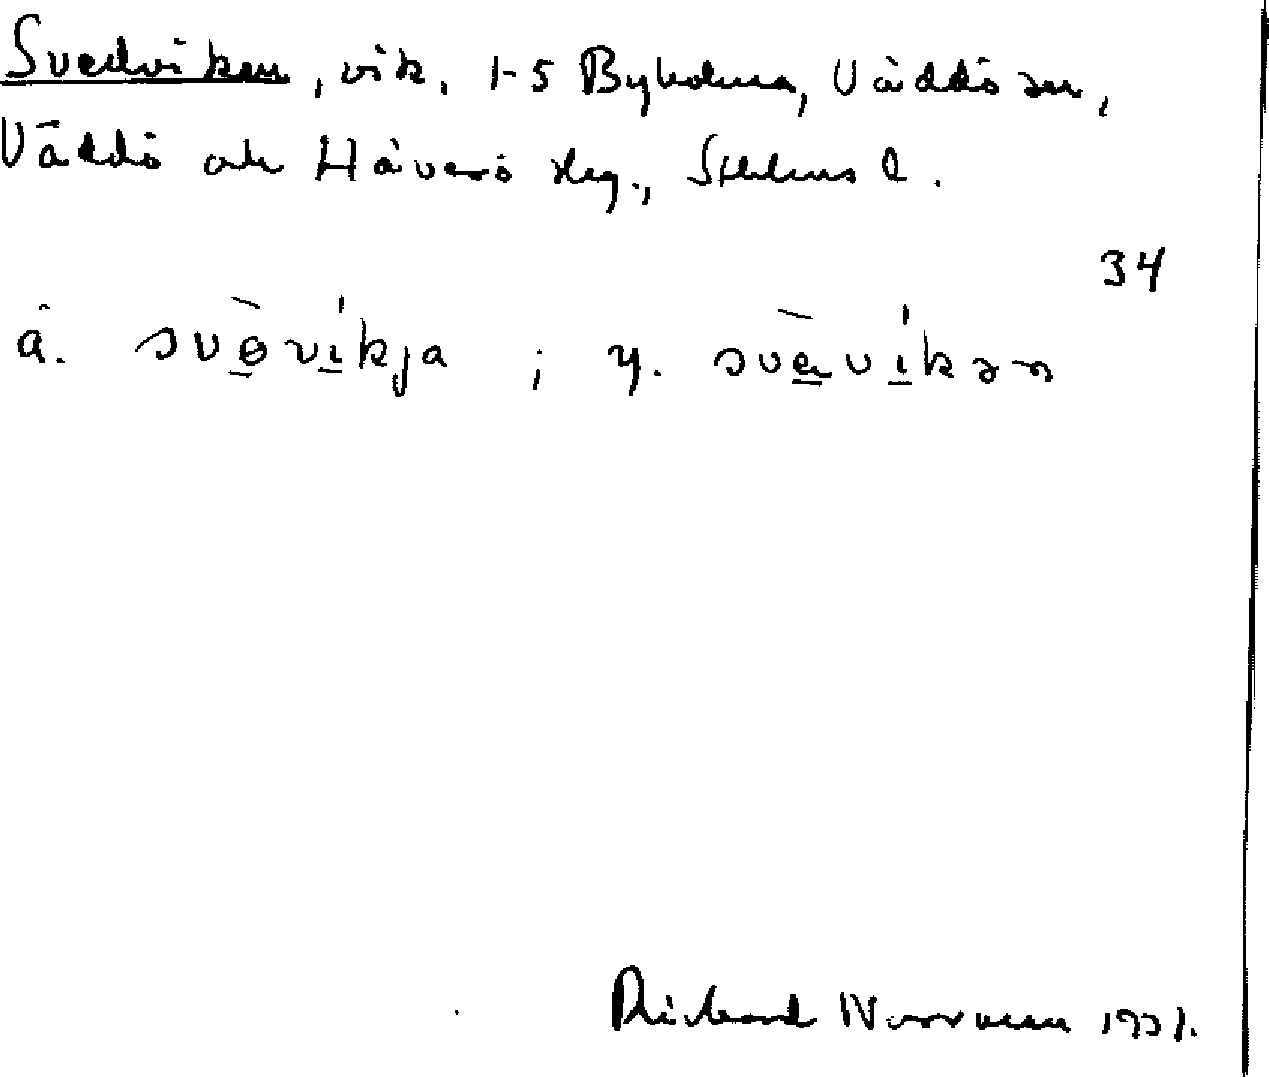 Svedviken, vik, 1-5 Byholma, Väddö sn,
Väddö och Häverö slg., Sthlms l.
34
ä. svèvíkja ; y. svèvíkən
Rickard Norrman 1931.